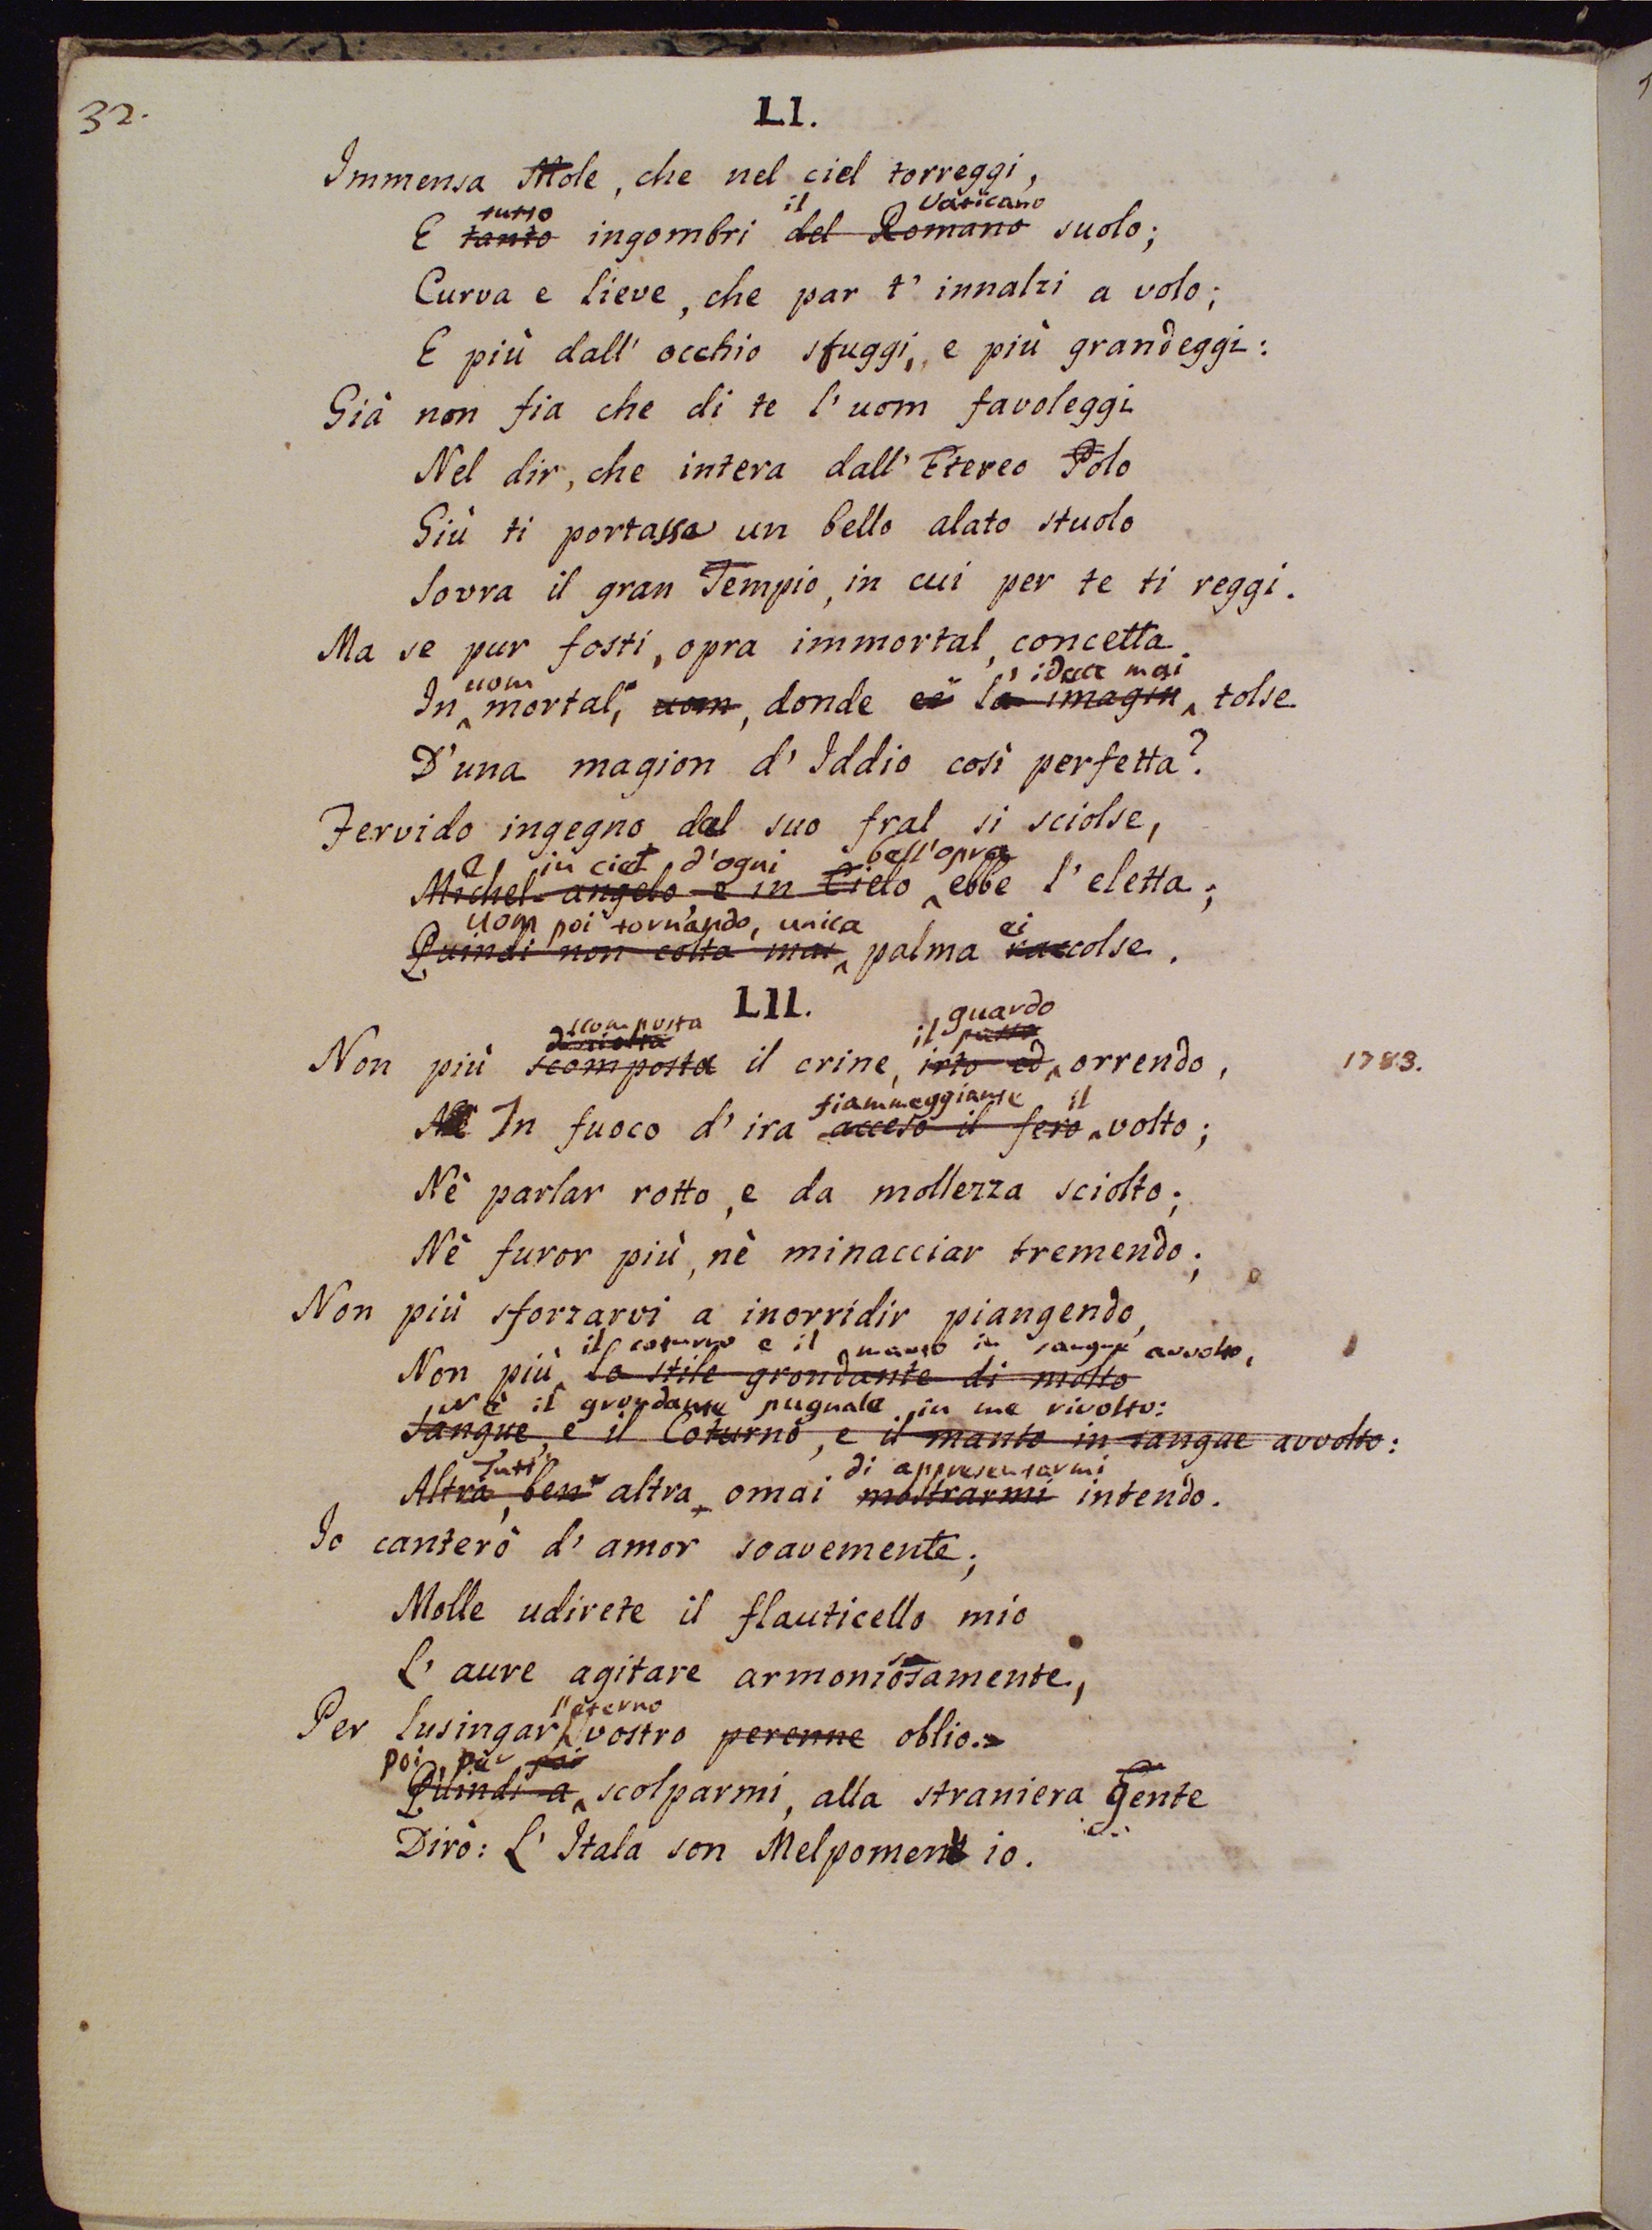 32.
LI.
Immensa Mole, che nel ciel torreggi,
tutto il Vaticano
E tanto ingombri del Romano suolo;
Curva e lieve, che par t' innalzi a volo;
E più dall' occhio sfuggi, e più grandeggi:
Già non fia che di te l' uom favoleggi
Nel dir, che intera dall' Etereo Polo
Giù ti portasse un bello alato stuolo
Sovra il gran Tempio, in cui per te ti reggi.
Ma se pur fosti, opra immortal, concetta
uom idea mai
In mortal, uom, donde ei la imagin tolse
D'una magion d' Iddio così perfetta?
Fervido ingegno dal suo fral si sciolse,
E in ciel d'ogni bell'opra
Michel-angelo, e in Cielo ebbe l' eletta;
Uom poi tornando, unica ei
Quindi non colta mai palma raccolse.
LII.
scomposta guardo
disciolta il passo
Non più scomposta il crine, irto ed orrendo, 1783.
fiammeggiante il
Nè In fuoco d' ira acceso il fero volto;
Nè parlar rotto, e da mollezza sciolto;
Nè furor più, nè minacciar tremendo;
Non più sforzarvi a inorridir piangendo,
il coturno e il manto in sangue avvolto,
Non più lo stile grondante di molto
Nè il grondante pugnale in me rivolto:
Sangue, e il Coturno, e il manto in sangue avvolto:
Tutt' di appresentarmi
Altra, ben altra omai mostrarmi intendo.
Io canterò d' amor soavemente;
Molle udirete il flauticello mio
L' aure agitare armoniosamente,
l'eterno
Per lusingar vostro perenne oblio.
poi per poi
Quindi a scolparmi, alla straniera Gente
Dirò: L' Itala son Melpomene io.